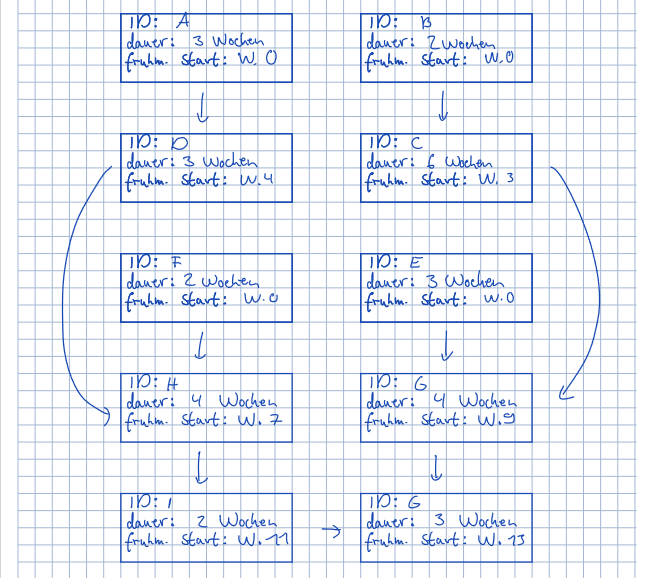 ID: A
dauer: 3 Wochen
fruhm. Start: W. 0
ID: B
dauer: 2 Wochen
fruhm. Start: W.0
ID: D
dauer: 3 Wochen
fruhm. Start: W.4
ID: C
dauer: 6 Wochen
fruhm. Start: W. 3
ID: F
dauer: 2 Wochen
fruhm. Start: W.0
ID: E
dauer: 3 Wochen
fruhm. Start: W.0
ID: H
dauer: 4 Wochen
fruhm. Start: W. 7
ID: G
dauer: 4 Wochen
fruhm. Start: W.9
ID: I
dauer: 2 Wochen
fruhm. Start: W. 11
ID: G
dauer: 3 Wochen
fruhm. Start: W. 13